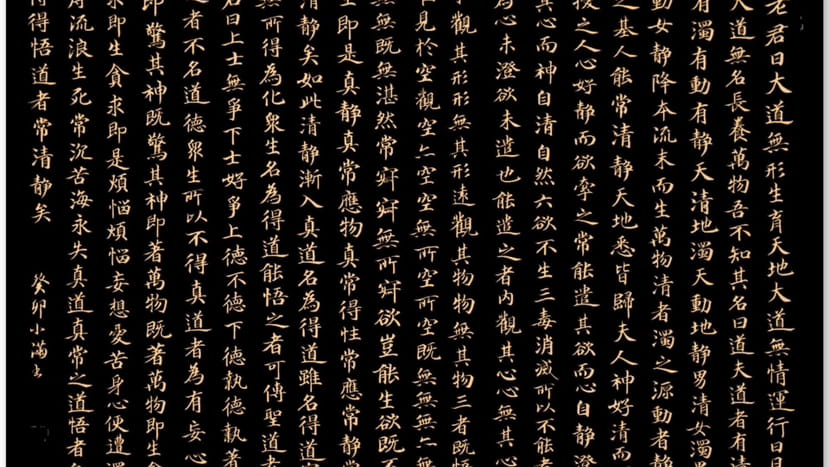 老君曰大道無形生育天地大道無情運行日
大道無名長養萬物吾不知其名曰道夫道者有清
有濁有動有静天清地濁天動地静男清女濁
動女静降本流末而生萬物清者濁之源動者静
之基人能常清静天地悉皆歸夫人神好清而
擾之人心好静而欲牽之常能遣其欲而心自静澄
其心而神自清自然六欲不生三毒消滅所以不能者
為心未澄欲未遣也能遣之者內觀其心心無其心
觀其形形無其形遠觀其物物無其物三者既悟
見於空觀空亦空空無所空所空既無無無亦無
無既無湛然常寂寂無所寂欲豈能生欲既不
生即是真静真常應物真常得性常應常静
清静矣如此清静漸入真道名為得道雖名得道
無所得為化衆生名為得道能悟之者可傳聖道
君曰上士無爭下士好爭上德不德下德執德執著
之者不名道德衆生所以不得真道者為有妄心
即驚其神既驚其神即著萬物既著萬物即生貪
求即生貪求即是煩惱煩惱妄想憂苦身心便遭濁
流浪生死常沉苦海永失真道真常之道悟者
得得悟道者常清静矣
癸卯小滿書